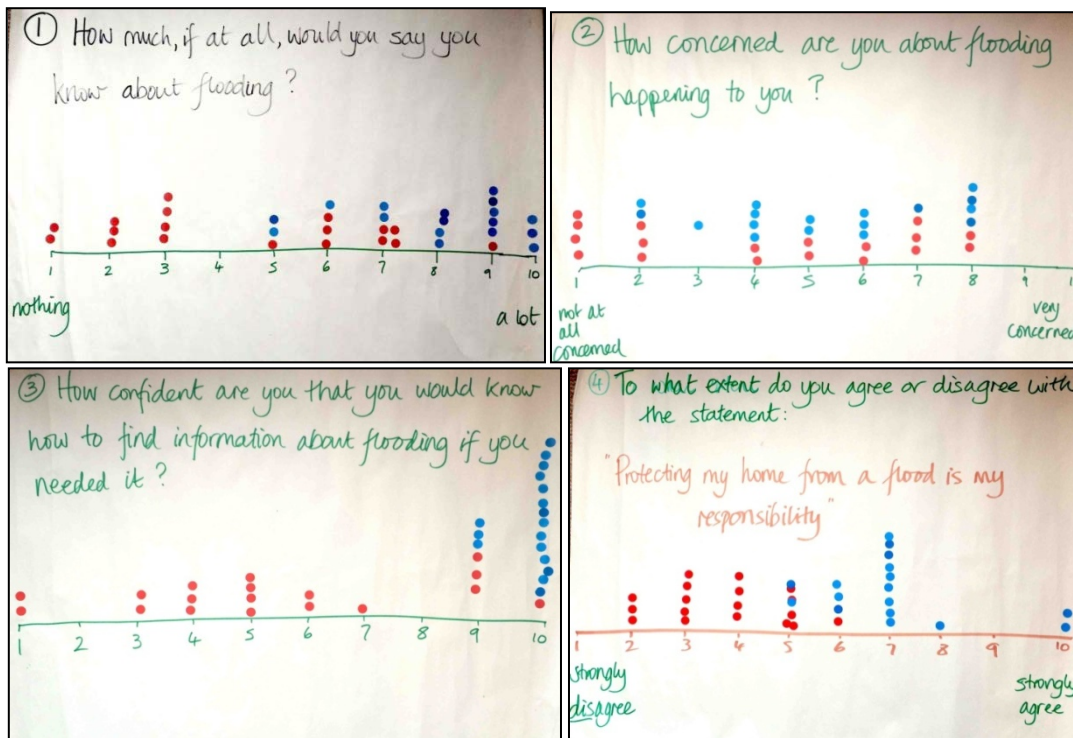 ① How much, if at all, would you say you
know about flooding?
1 2 3 4 5 6 7 8 9 10
nothing
a lot
② How concerned are you about flooding
happening to you?
1 2 3 4 5 6 7 8 9 1
not at
all
concerned
very
concerned
③ How confident are you that you would know
how to find information about flooding if you
needed it?
1 2 3 4 5 6 7 8 9 10
④ To what extent do you agree or disagree with
the statement:
"Protecting my home from a flood is my
responsibility"
1 2 3 4 5 6 7 8 9 10
strongly
disagree
strongly
agree